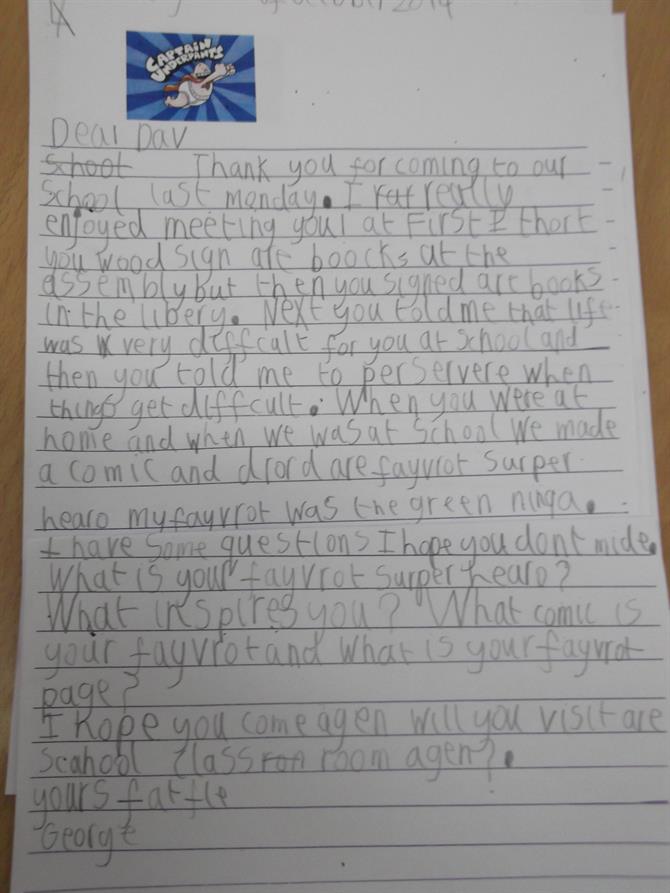 October 2014
CAPTAIN
UNDERPANTS
Dear Dav
School Thank you for coming to our
School last monday. I rat really
enjoyed meeting you! at First I thort
you wood sign are boocks at the
assembly but then you signed are books
in the libery. Next you told me that life
was very diffcalt for you at school and
then you told me to perservere when
things get diffcult. When you were at
home and when we was at school we made
a comic and drord are fayvrot surper
hearo my fayvrot was the green ninga.
I have some questions I hope you dont mide.
What is your fayvrot surper hearo?
What inspires you? What comic is
your fayvrot and what is your fayvrot
page?
I hope you come agen will you visit are
scahool class ron room agen?.
yours fatfle
George